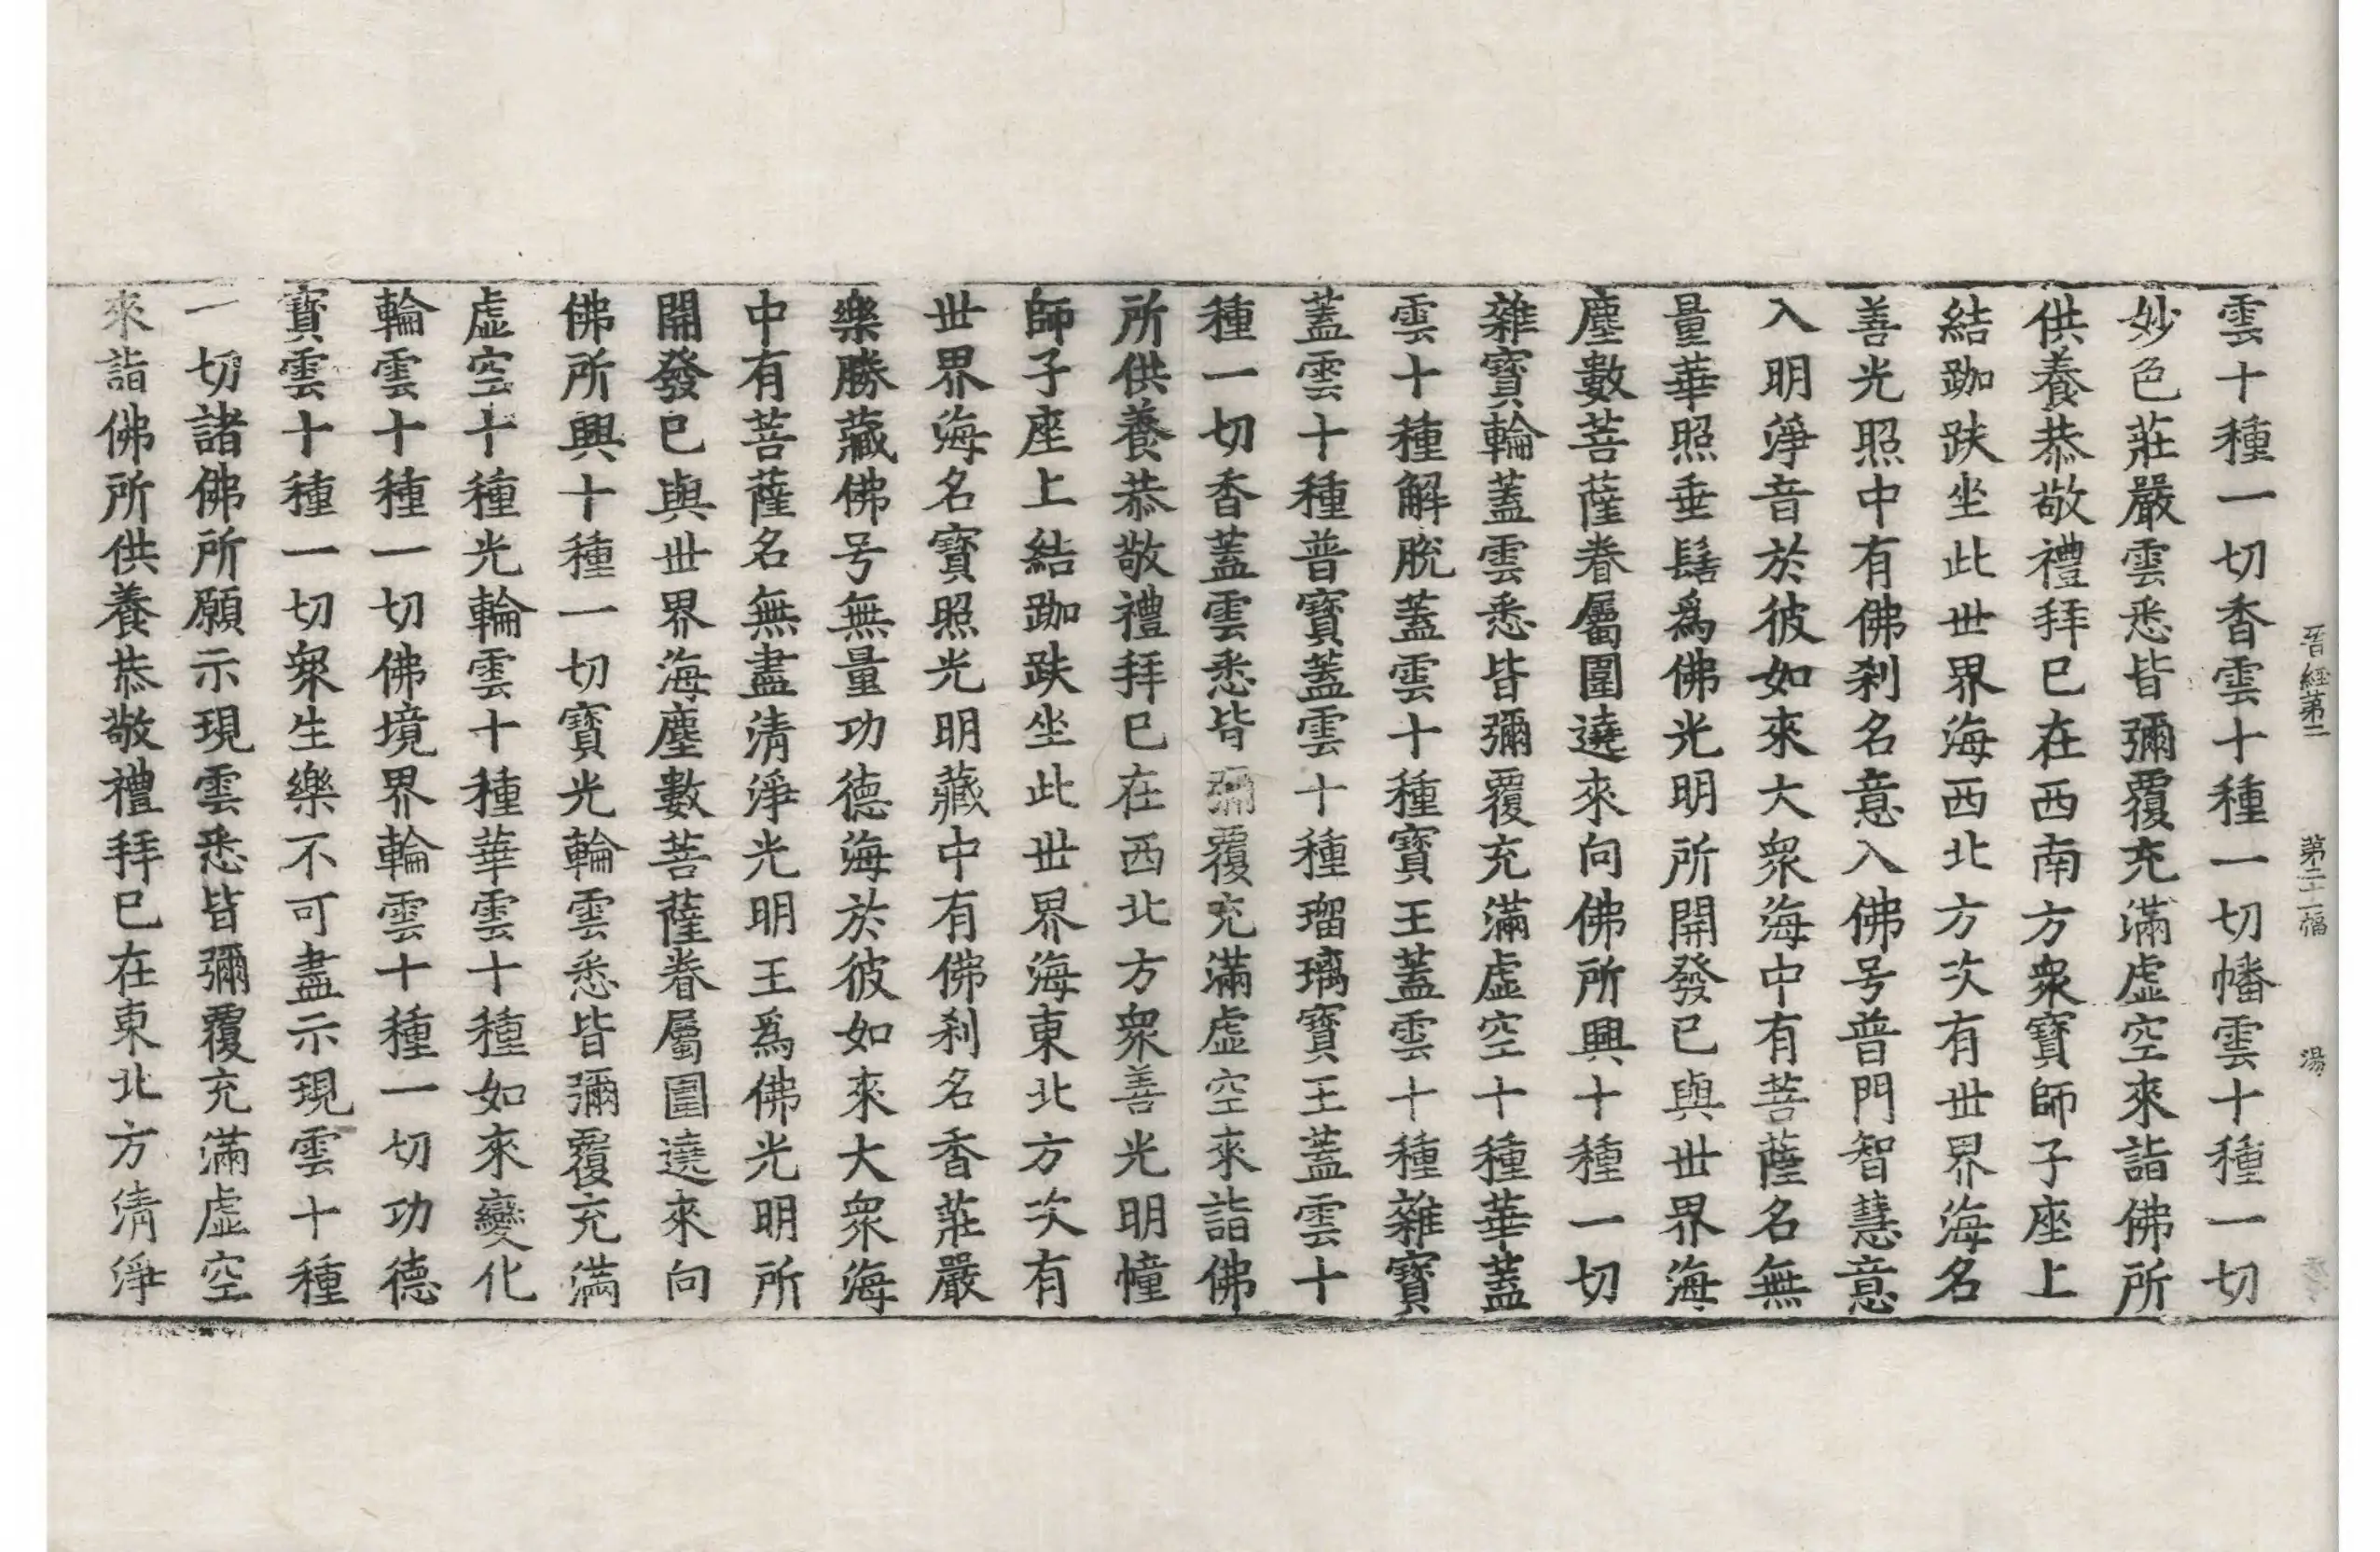 晉經第二　第二十二幅　湯
雲十種一切香雲十種一切幡雲十種一切
妙色莊嚴雲悉皆彌覆充滿虛空來詣佛所
供養恭敬禮拜已在西南方衆寶師子座上
結跏趺坐此世界海西北方次有世界海名
善光照中有佛刹名意入佛号普門智慧意
入明淨音於彼如來大衆海中有菩薩名無
量華照垂髻爲佛光明所開發已與世界海
塵數菩薩眷屬圍遶來向佛所興十種一切
雜寶輪蓋雲悉皆彌覆充滿虛空十種華蓋
雲十種解脫蓋雲十種寶王蓋雲十種雜寶
蓋雲十種普寶蓋雲十種瑠璃寶王蓋雲十
種一切香蓋雲悉皆彌覆充滿虛空來詣佛
所供養恭敬禮拜已在西北方衆善光明幢
師子座上結跏趺坐此世界海東北方次有
世界海名寶照光明藏中有佛刹名香莊嚴
樂勝藏佛号無量功德海於彼如來大衆海
中有菩薩名無盡清淨光明王爲佛光明所
開發已與世界海塵數菩薩眷屬圍遶來向
佛所興十種一切寶光輪雲悉皆彌覆充滿
虛空十種光輪雲十種華雲十種如來變化
輪雲十種一切佛境界輪雲十種一切功德
寶雲十種一切衆生樂不可盡示現雲十種
一切諸佛所願示現雲悉皆彌覆充滿虛空
來詣佛所供養恭敬禮拜已在東北方清淨